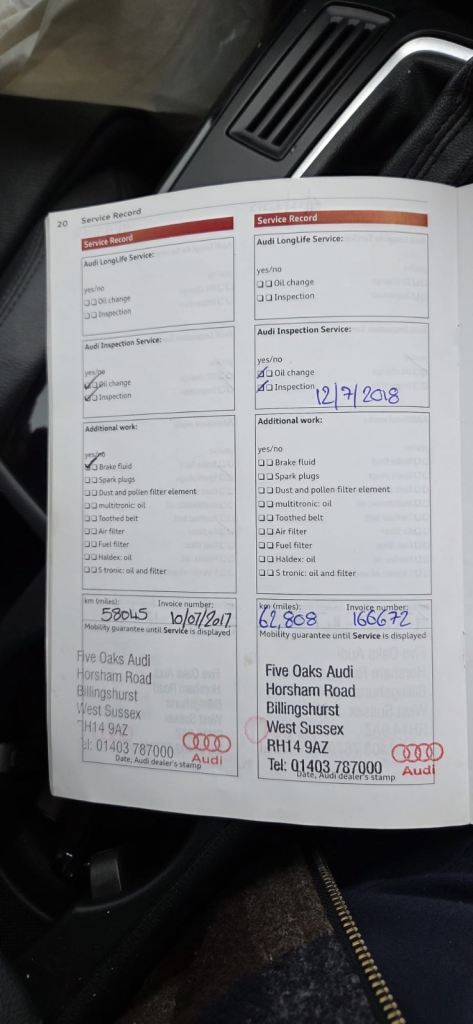 20 Service Record
Service Record
Audi LongLife Service:
yes/no
Oil change
Inspection
Audi Inspection Service:
yes/no
Oil change
Inspection
Additional work:
yes/no
Brake fluid
Spark plugs
Dust and pollen filter element
multitronic: oil
Toothed belt
Air filter
Fuel filter
Haldex: oil
S tronic: oil and filter
km (miles): Invoice number:
58045 10/07/2017
Mobility guarantee until Service is displayed
Five Oaks Audi
Horsham Road
Billingshurst
West Sussex
RH14 9AZ
Tel: 01403 787000
Audi
Date, Audi dealer's stamp
Service Record
Audi LongLife Service:
yes/no
Oil change
Inspection
Audi Inspection Service:
yes/no
Oil change
Inspection
12/7/2018
Additional work:
yes/no
Brake fluid
Spark plugs
Dust and pollen filter element
multitronic: oil
Toothed belt
Air filter
Fuel filter
Haldex: oil
S tronic: oil and filter
km (miles): Invoice number:
62,808 166672
Mobility guarantee until Service is displayed
Five Oaks Audi
Horsham Road
Billingshurst
West Sussex
RH14 9AZ
Tel: 01403 787000
Audi
Date, Audi dealer's stamp